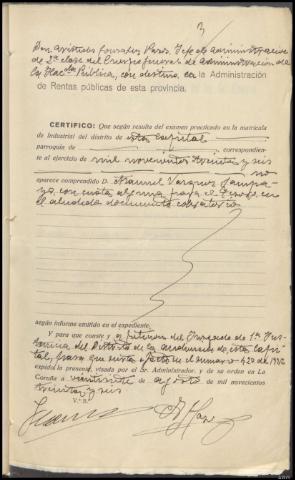 3
Don Arístides González Pardo, Jefe de Administración
de 3ª clase del Cuerpo general de Administración de
la Hacda Pública, con destino en la Administración
de Rentas públicas de esta provincia.
CERTIFICO: Que según resulta del examen practicado en la matrícula
de Industrial del distrito de esta capital
parroquia de correspondien-
te al ejercicio de mil novecientos treinta y seis
no
aparece comprendido D. Manuel Vazquez
con cuota alguna para el Tesoro en
el aludido documento cobratorio
según informe emitido en el expediente
Y para que conste y a petición del Juzgado de 1ª Ins-
tancia del Distrito de la Audiencia de esta Capi-
tal, para que surta efecto en el sumario 420 de 1936
expido la presente, visada por el Sr. Administrador, y de su orden en La
Coruña a veintisiete de agosto de mil novecientos
treinta y seis
V.º B.º